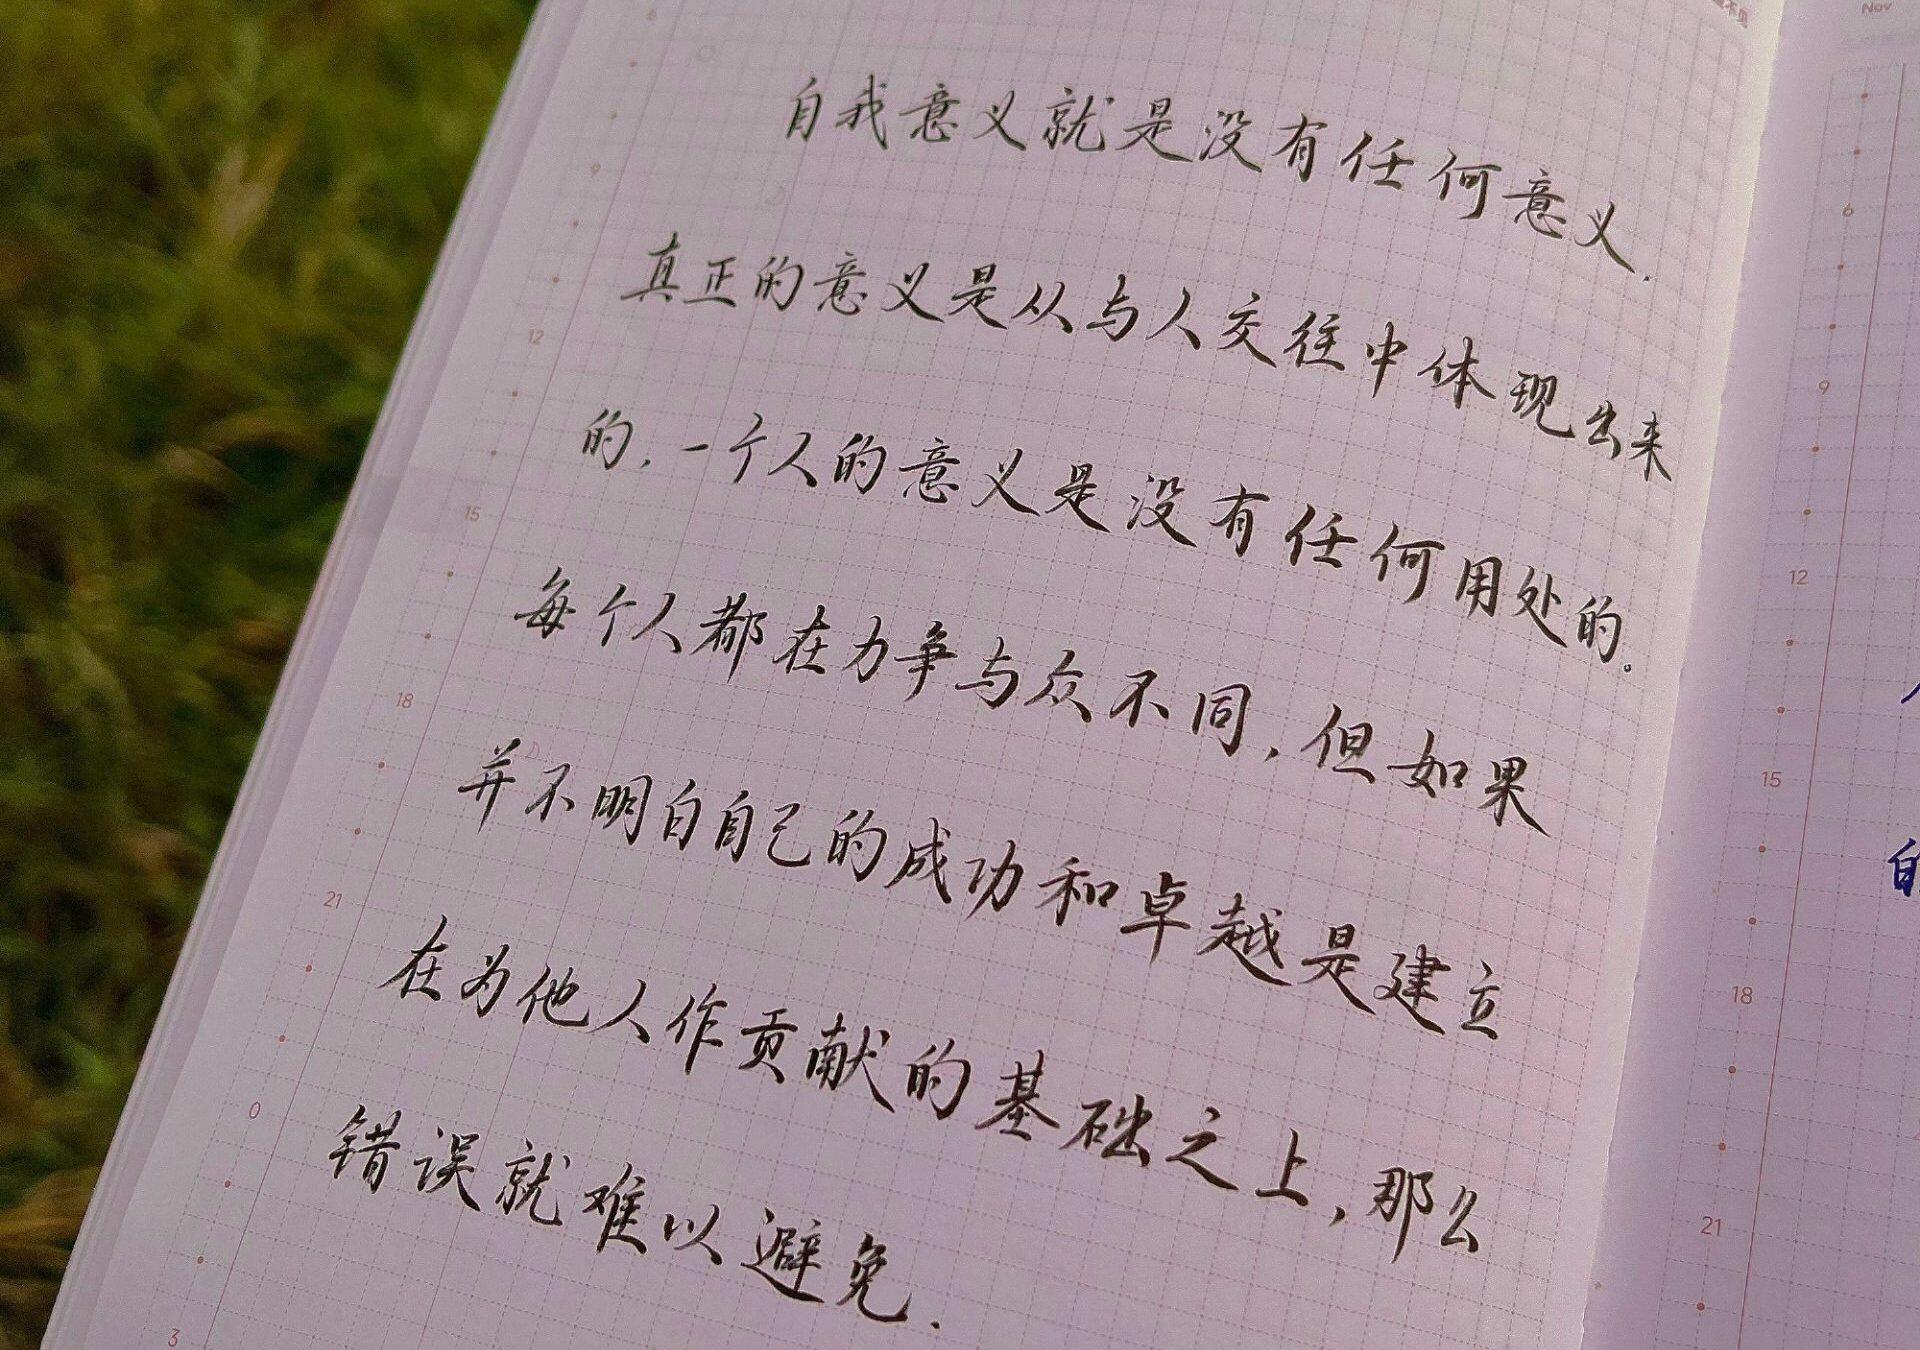 自我意义就是没有任何意义.
真正的意义是从与人交往中体现出来
的.一个人的意义是没有任何用处的。
每个人都在力争与众不同,但如果
并不明白自己的成功和卓越是建立
在为他人作贡献的基础之上,那么
错误就难以避免.
9
12
15
18
21
0
3
Nov
6
9
12
15
18
21